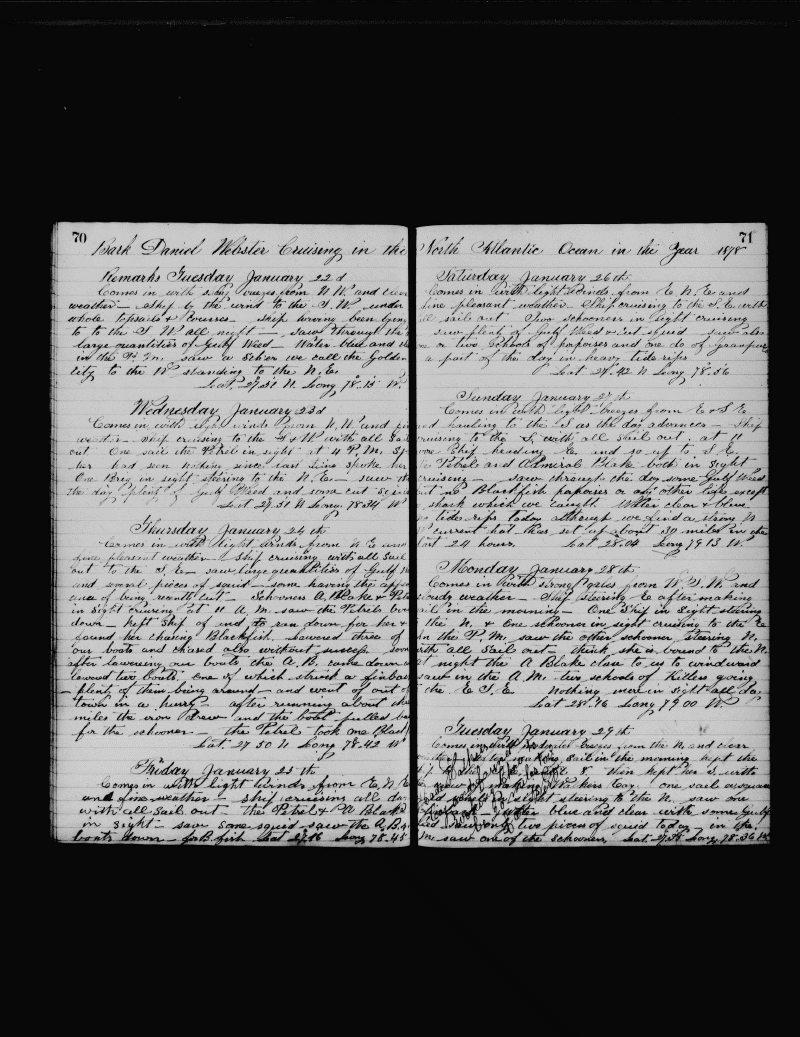 70
Bark Daniel Webster Cruising in the
Remarks Tuesday January 22d
Comes in with breezes from N W. and clear
weather – ship by the wind to the S. W. under
whole topsails & Courses – ship having been lying
to to the S W all night – saw through the
large quantities of Gulf Weed – Water blue and
in the P. M. saw a Schr we call the Golden
City to the W standing to the N. E.
Lat 27.31 N Long 78.15 W.
Wednesday January 23d
Comes in with light winds from N. W. and
weather – ship cruising to the with all Sail
out One sail the Petrel in sight at 4 P. M.
her had seen nothing since last time spoke her
One Brig in sight steering to the N. E. – saw
the day plenty of Gulf Weed and some cut squid
Lat 27.51 N Long. 78.14 W
Thursday January 24th
Comes in with light winds from N E and
fine pleasant weather – ship cruising with all Sail
out to the S. E – saw large quantities of Gulf
and several pieces of squid – some having the
ance of being recently cut – Schooners A. Blake &
in sight cruising at 11 A. M. saw the Petrels
down – kept ship off and to ran down for her &
found her chasing Blackfish. lowered three of
our boats and chased also without success soon
after lowering our boats the A. B. came down
lowered two boats, one of which struck a finback
– plenty of them being around – and went off out of
town in a hurry – after running about
miles the iron drew and the boat pulled
for the schooner – the Petrel took one
Lat. 27 50 N Long 78.42 W
Friday January 25th
Comes in with light winds from E. N. E
and fine weather – ship cruising all day
with all Sail out – the Petrel & A Blake
in sight – saw some squid saw the A. B.
boats down – for B. fish Lat 27.46 Long 78.45
71
North Atlantic Ocean in the Year 1878
Saturday January 26th
Comes in with light winds from E N. E and
fine pleasant weather. Ship cruising to the S. E. with
all sail out. Two schooners in sight cruising
saw plenty of Gulf Weed & cut squid – saw also
one or two Schools of porpoises and one do of Grampus
a part of the day in heavy tide rips
Lat 27.42 N Long 78.56
Sunday January 27th
Comes in with light breezes from E & S E
and hauling to the S as the day advances – Ship
cruising to the S, with all Sail out, at 11
wore Ship heading E. and so up to S. E.
the Petrel and Admiral Blake both in sight
cruising – saw through the day some Gulf Weed
but no Blackfish porpoises or any other life except
shark which we caught. Water clear & blue.
no tide rips today although we find a strong N
W current that has set up about 30 miles in the
last 24 hours. Lat 28.04 Long 79 13 W
Monday January 28th
Comes in with strong gales from W. S. W. and
cloudy weather – Ship steering E after making
sail in the morning – One Ship in sight steering
to the N. & One schooner in sight cruising to the E
in the P. M. saw the other schooner steering N.
with all Sail out – think she is bound to the N.
at night the A Blake close to us to windward
saw in the A. M. two schools of Killers going
to the E. S. E. Nothing more in sight all day
Lat 28.16 Long 79 00 W
Tuesday January 29th
Comes in with moderate breezes from the N. and clear
weather making Sail in the morning kept the
Then kept her S. with
one sail
in sight steering to the N. saw one
finback – Water blue and clear with some Gulf
two pieces of squid today – in the
saw one of the schooners Lat. 27.35 Long 78.36 W